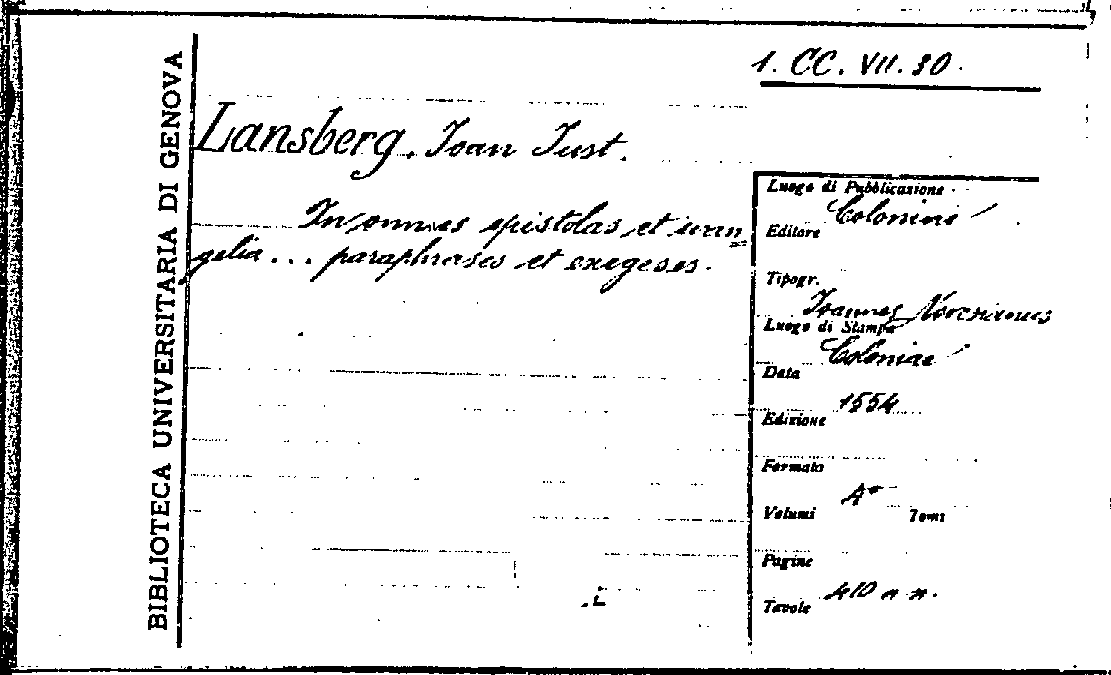 BIBLIOTECA UNIVERSITARIA DI GENOVA
1. CC. VII. 30.
Lansberg, Ioan Iust.
In omnes epistolas et evan=
gelia... paraphrases et exegeses.
Luogo di Pubblicazione
Coloniae
Editore
Tipogr.
Ioannes
Luogo di Stampa
Coloniae
Data
1554
Edizione
Formato
4º
Volumi Tomi
Pagine
410 n n.
Tavole